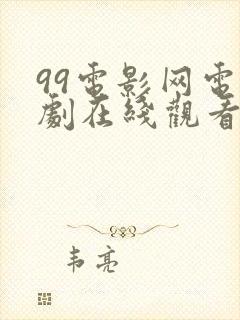 99電影网电
劇在綫觀看
韦亮